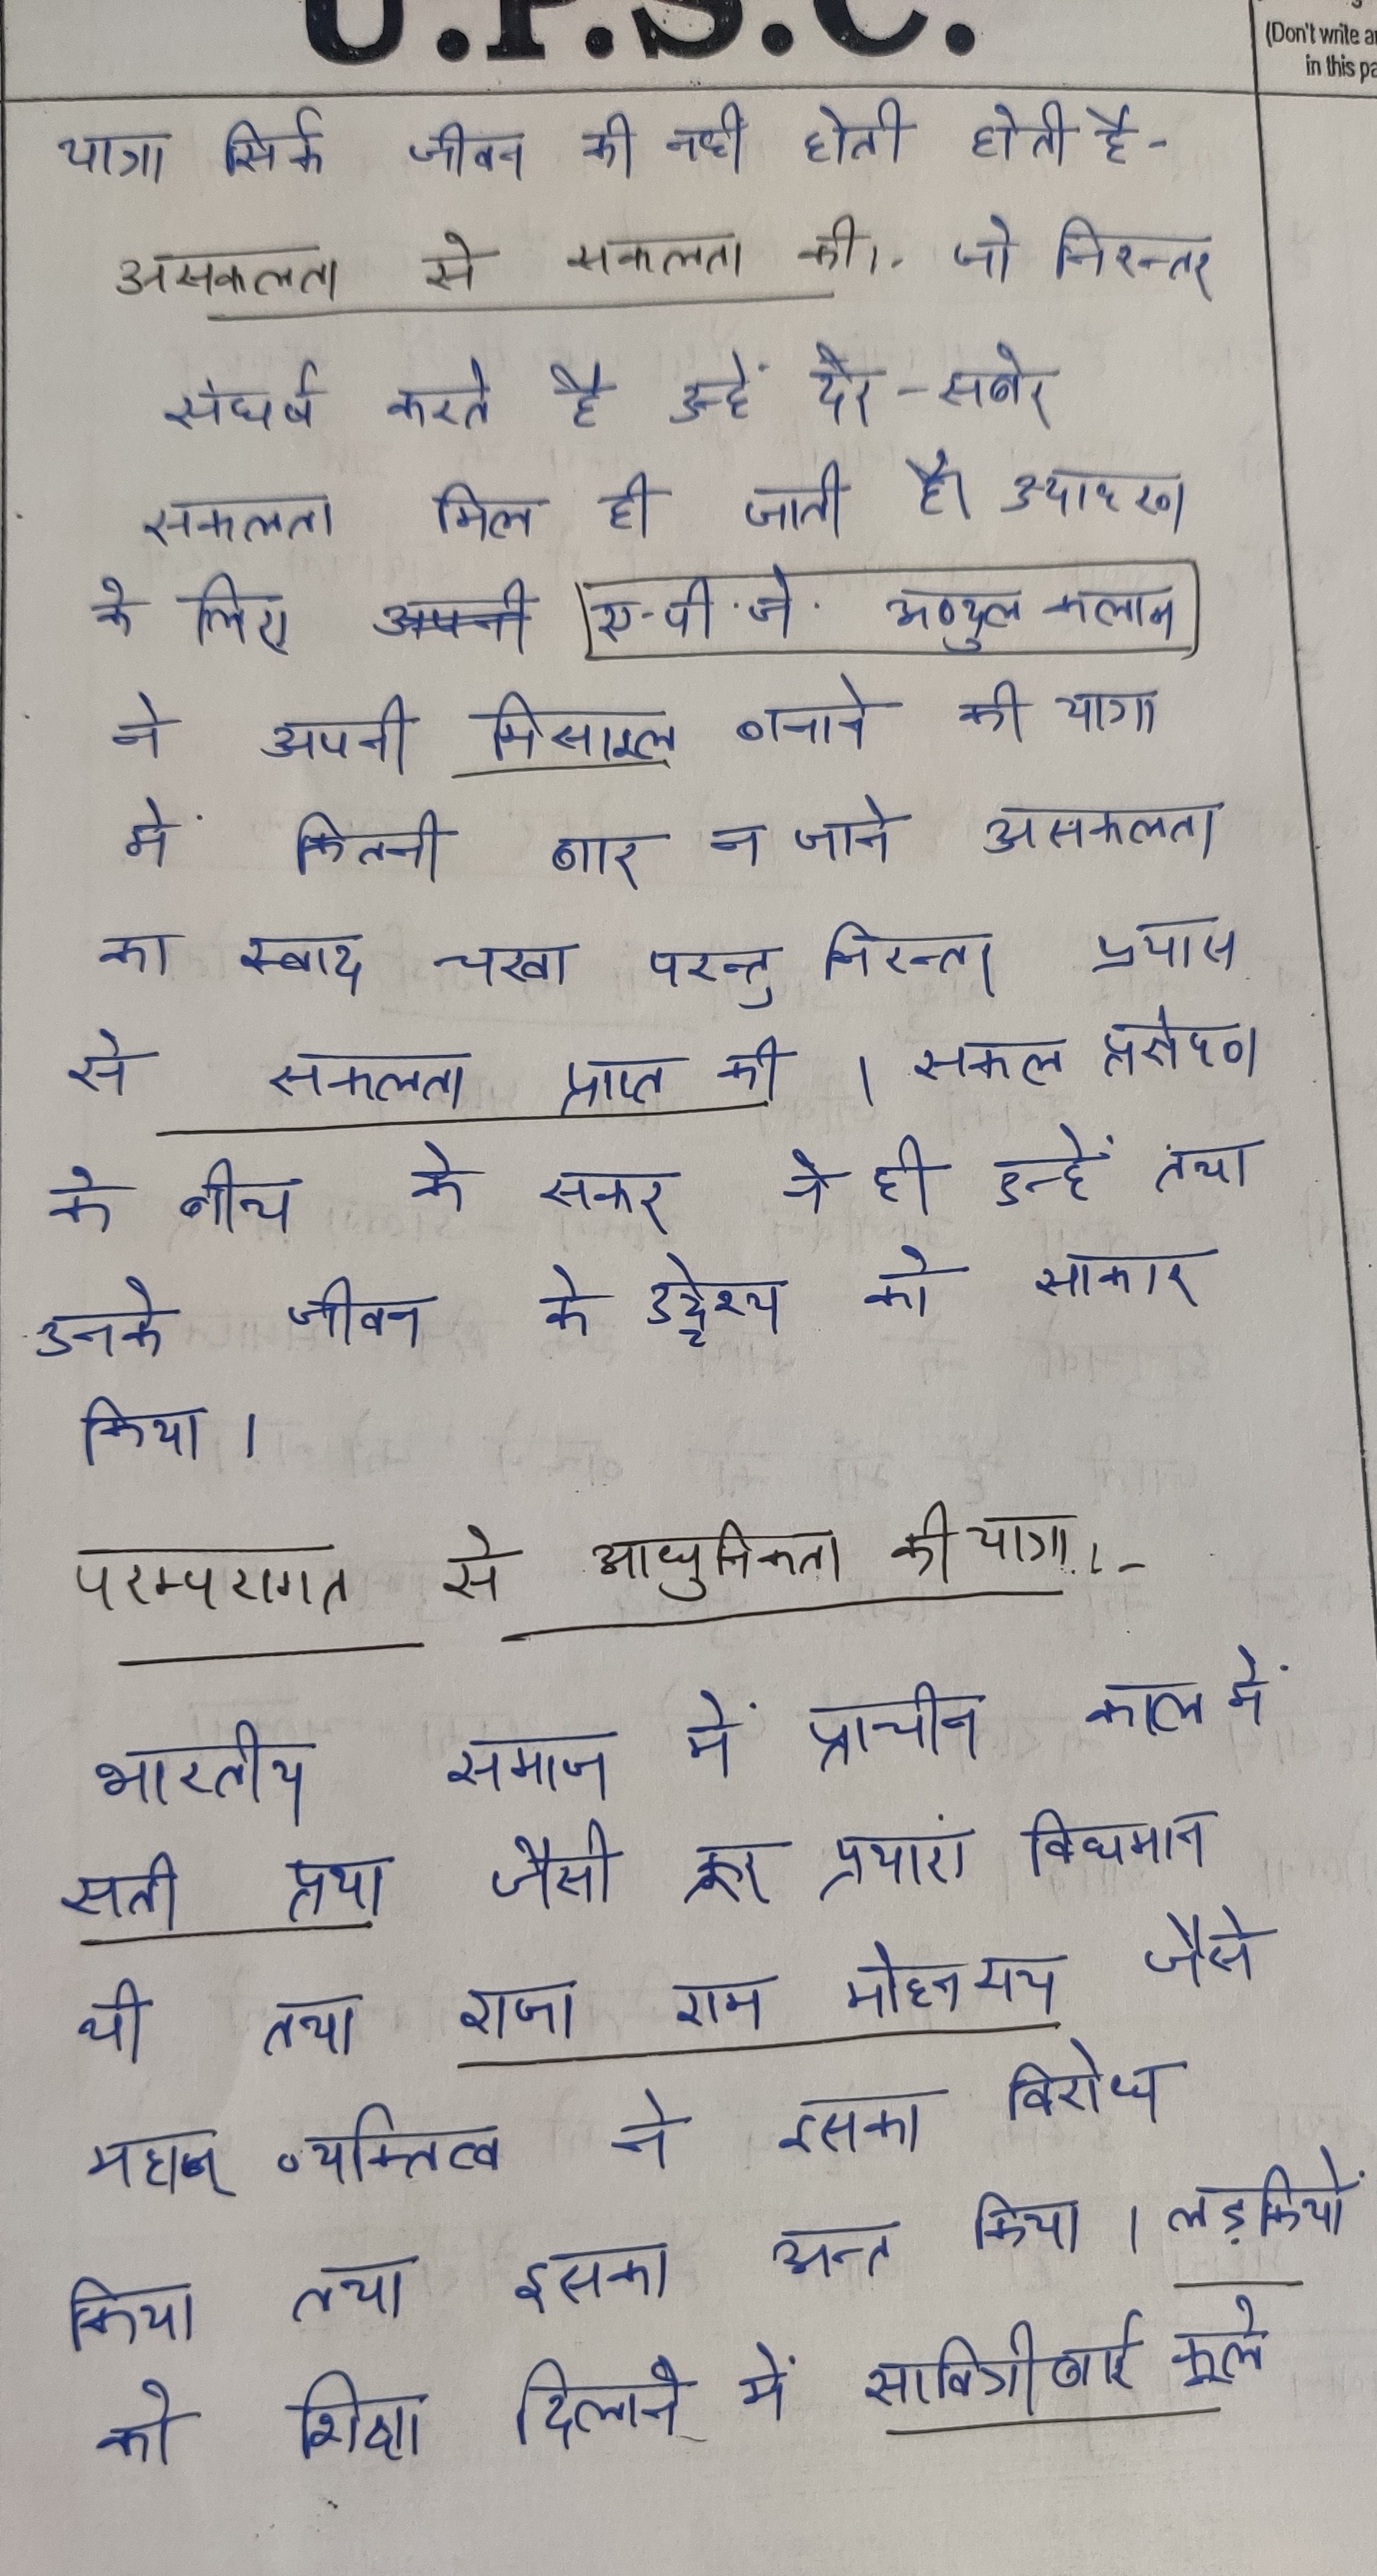 U.P.S.C.
(Don't write a
in this pa
यात्रा सिर्फ जीवन की नही होती होती है-
असफलता से सफलता की।. जो निरन्तर
संघर्ष करते है उन्हें देर-सबेर
सफलता मिल ही जाती है। उदाहरण
के लिए अपनी ए-पी.जे. अब्दुल कलाम
ने अपनी मिसाइल बनाने की यात्रा
में कितनी बार न जाने असफलता
का स्वाद चखा परन्तु निरन्तर प्रयास
से सफलता प्राप्त की । सफल प्रक्षेपण
के बीच के सफर ने ही उन्हें तथा
उनके जीवन के उद्देश्य को साकार
किया ।
परम्परागत से आधुनिकता की यात्रा।.-
भारतीय समाज में प्राचीन काल में
सती प्रथा जैसी क्रूर प्रथाएं विधमान
थी तथा राजा राम मोहन राय जैसे
महान व्यक्तित्व ने इसका विरोध
किया तथा इसका अन्त किया । लड़कियों
को शिक्षा दिलाने में सावित्री बाई फूले